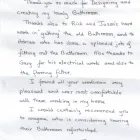 Thank you so much for Designing and
creating my lovely Bathroom.
Thanks also to Rick and Jamie's hard
work in gutting the old Bathroom, and to
who has done a splendid job of
fitting out the Bathroom. Also thanks to
Gary for his electrical work and also to
the flooring fitter.
I found all your workmen very
pleasant and was most comfortable
with them working in my home.
I would certainly recommend you
to anyone, who is considering having
their Bathroom refurbished.